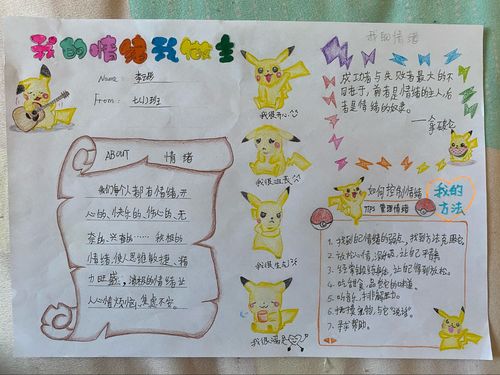 我的情绪我做主
Name:
From: 七(1)班
ABOUT 情绪
我们每个人都有情绪,开
心的、快乐的、伤心的、无
奈的、兴奋的…… 积极的
情绪使人思维敏捷、精
力旺盛,消极的情绪让
人心情烦恼,焦虑不安。
我很开心
我很沮丧
我很生气
我很满足
我的情绪
成功者与失败者最大的不
同在于,前者是情绪的主人,后
者是情绪的奴隶。
——拿破仑
如何控制情绪
TIPS 管理情绪
我的
方法
1. 找到自己情绪的弱点,找到方法克服它
2. 放松心情,让自己平静
3. 经常锻炼身体,让自己得到放松。
4. 吃甜食,品尝它的味道。
5. 听音乐,来排解压力。
6.
7. 寻求帮助。